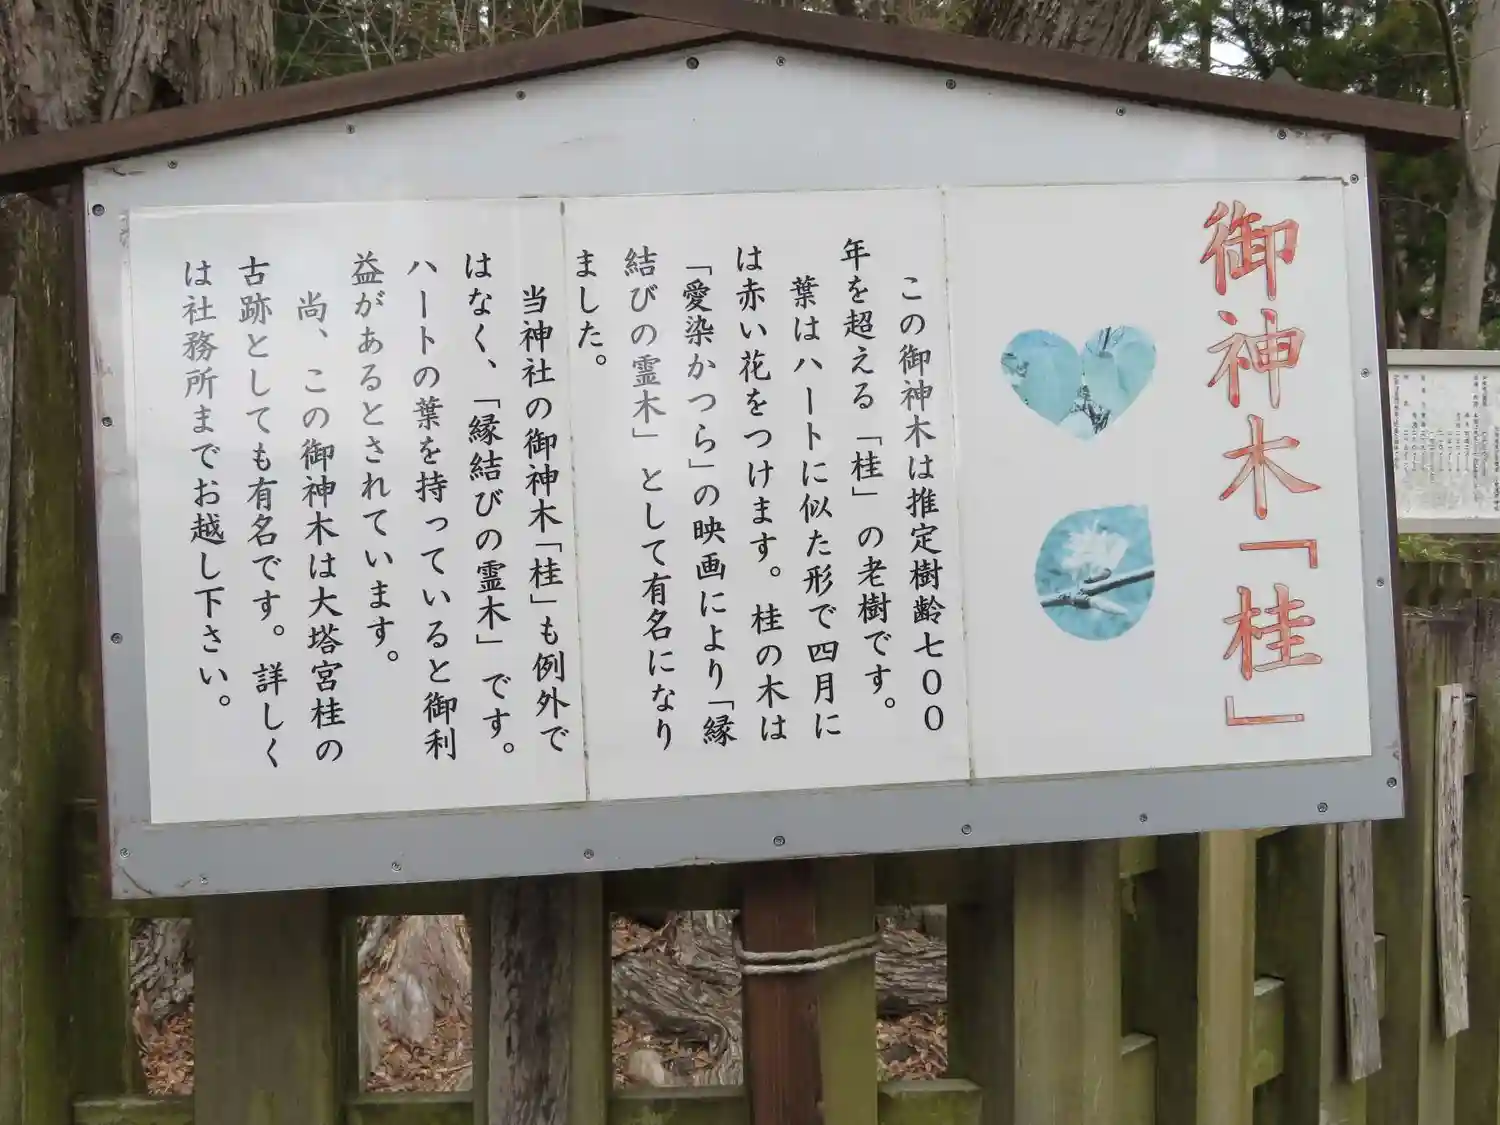 御神木「桂」
この御神木は推定樹齢七００
年を超える「桂」の老樹です。
葉はハートに似た形で四月に
は赤い花をつけます。桂の木は
「愛染かつら」の映画により「縁
結びの霊木」として有名になり
ました。
当神社の御神木「桂」も例外で
はなく、「縁結びの霊木」です。
ハートの葉を持っていると御利
益があるとされています。
尚、この御神木は大塔宮桂の
古跡としても有名です。詳しく
は社務所までお越し下さい。